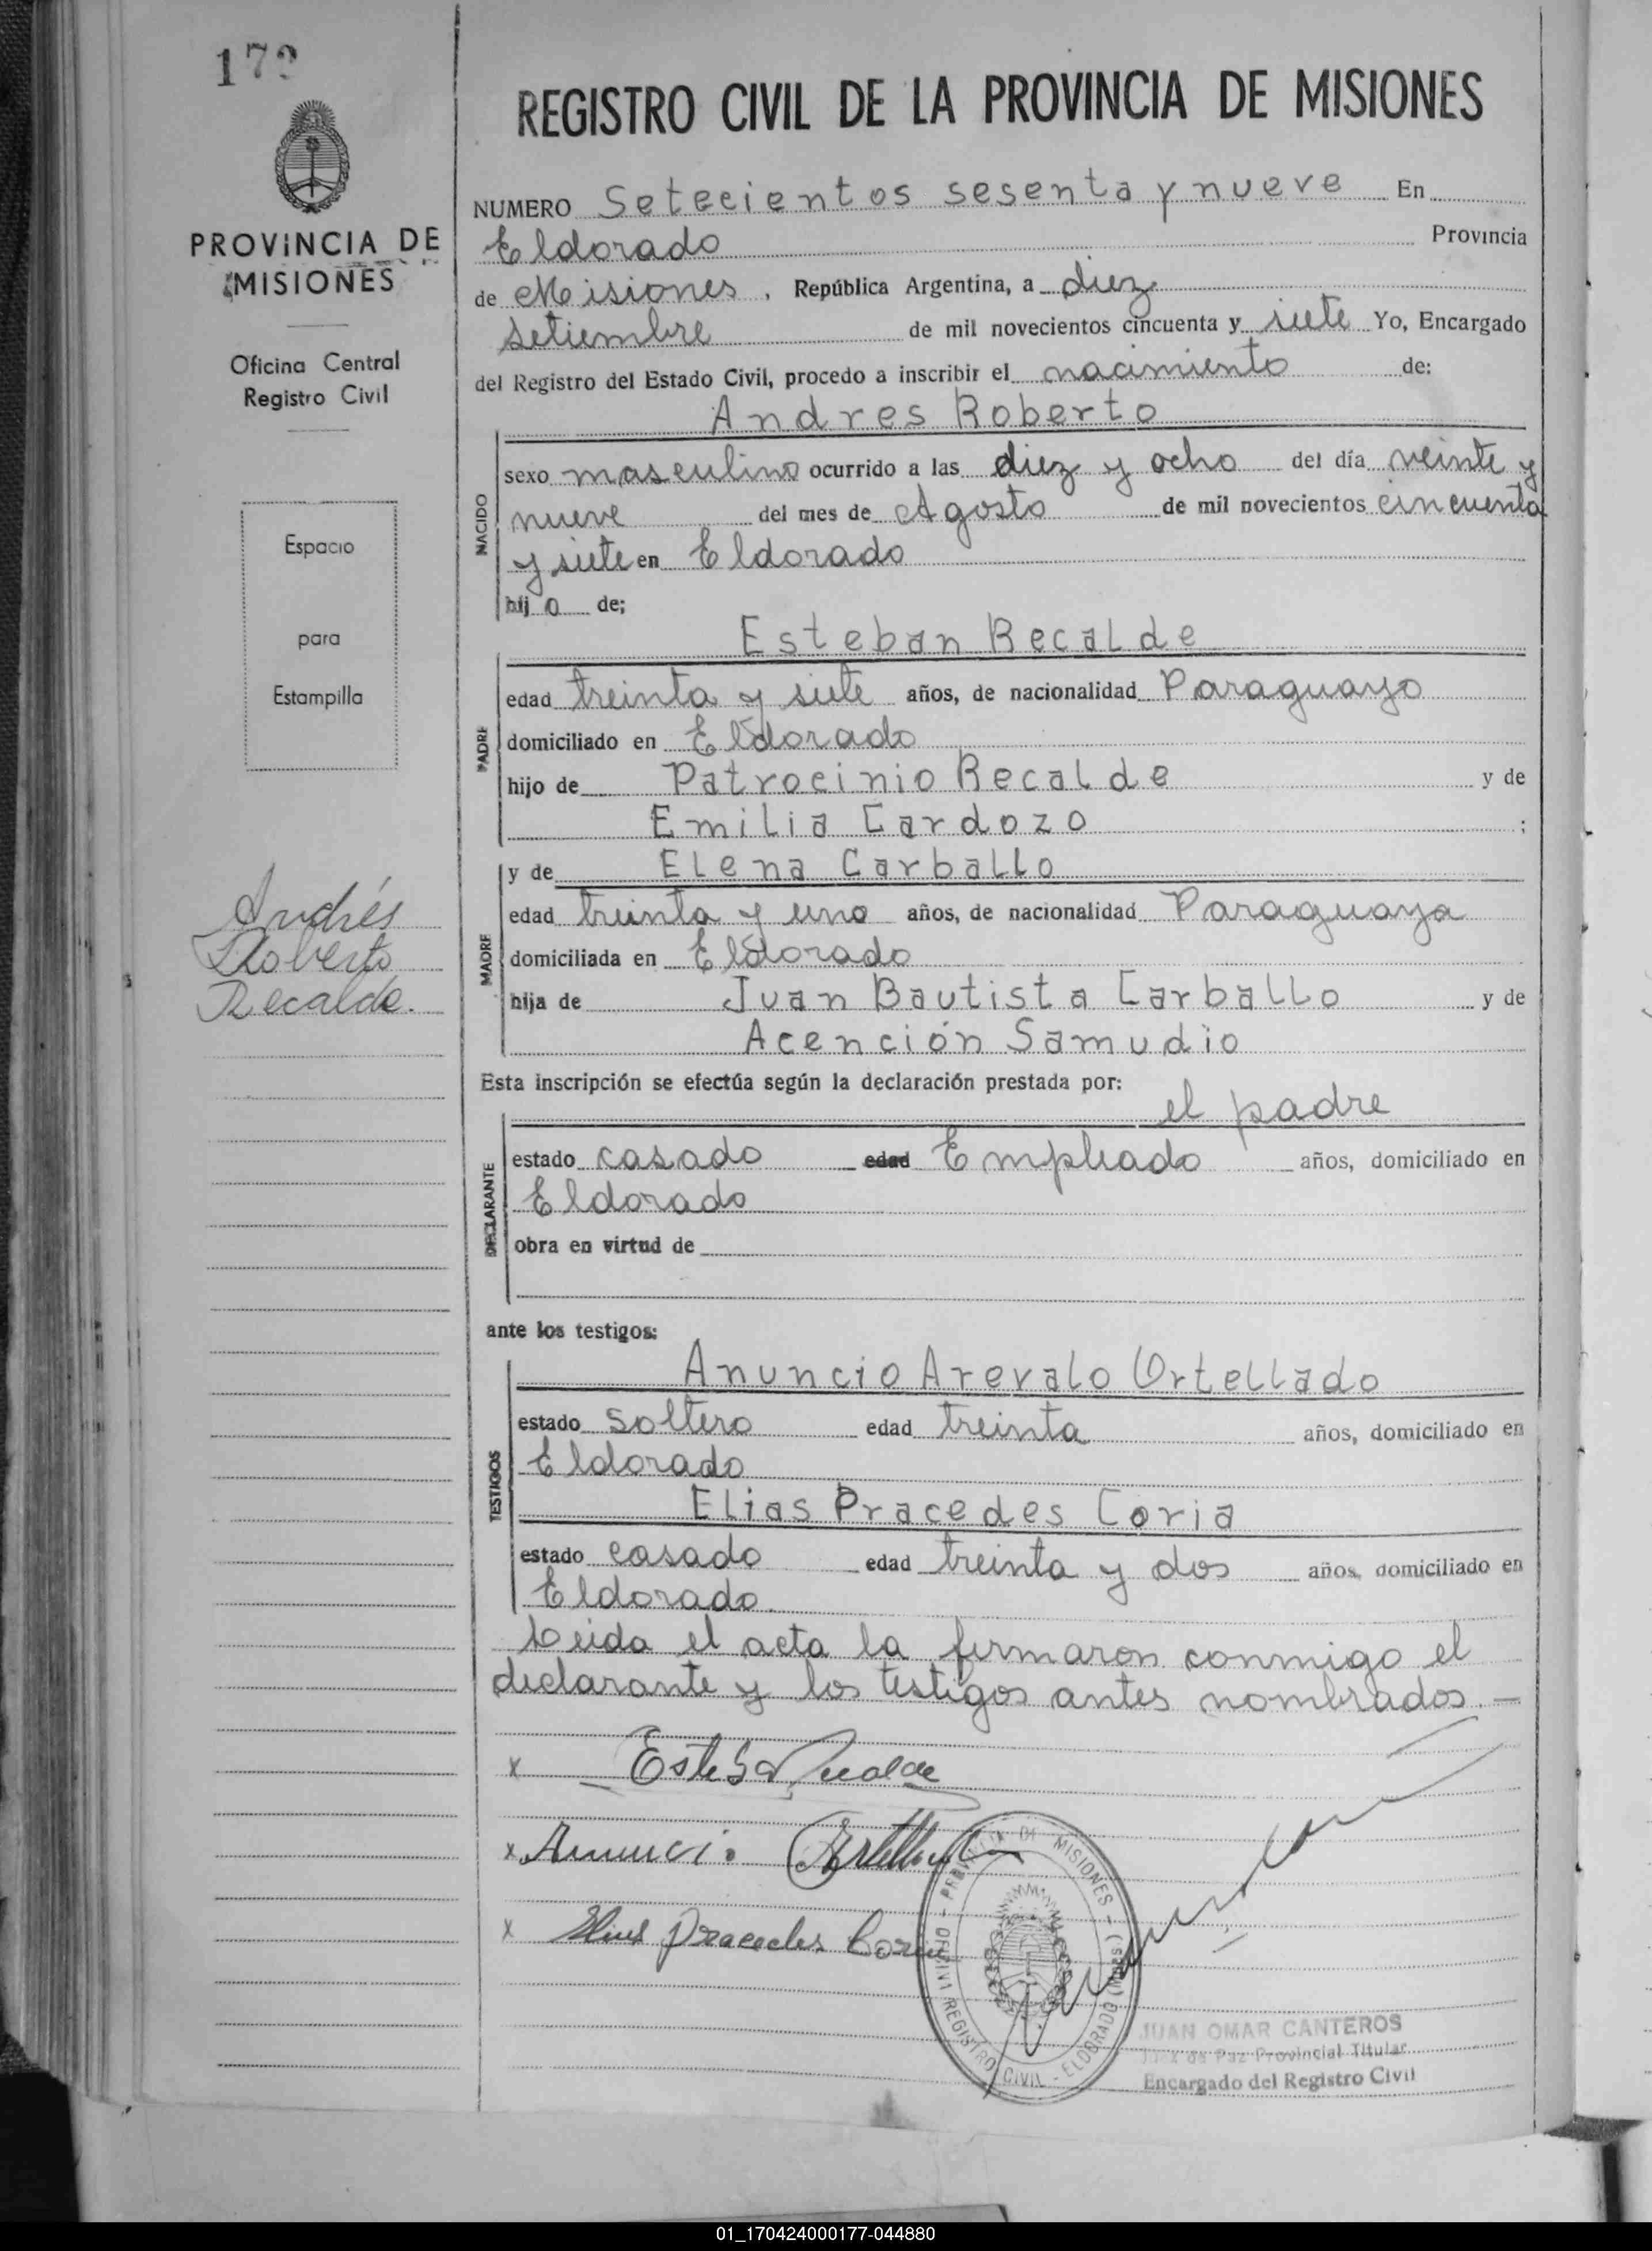 172
PROVINCIA DE
MISIONES
Oficina Central
Registro Civil
Espacio
para
Estampilla
Andrés
Roberto
Recalde.
REGISTRO CIVIL DE LA PROVINCIA DE MISIONES
NUMERO Setecientos sesenta y nueve En
Eldorado Provincia
de Misiones, República Argentina, a diez
setiembre de mil novecientos cincuenta y siete Yo, Encargado
del Registro del Estado Civil, procedo a inscribir el nacimiento de:
Andres Roberto
NACIDO
sexo masculino ocurrido a las diez y ocho del día veinte y
nueve del mes de Agosto de mil novecientos cincuenta
y siete en Eldorado
hijo de;
Esteban Recalde
PADRE
edad treinta y siete años, de nacionalidad Paraguayo
domiciliado en Eldorado
hijo de Patrocinio Recalde y de
Emilia Cardozo ;
MADRE
y de Elena Carballo
edad treinta y uno años, de nacionalidad Paraguaya
domiciliada en Eldorado
hija de Juan Bautista Carballo y de
Acención Samudio
Esta inscripción se efectúa según la declaración prestada por:
el padre
DECLARANTE
estado casado edad Empleado años, domiciliado en
Eldorado
obra en virtud de
ante los testigos:
TESTIGOS
Anuncio Arevalo Ortellado
estado soltero edad treinta años, domiciliado en
Eldorado
Elias Pracedes Coria
estado casado edad treinta y dos años, domiciliado en
Eldorado.
Leida el acta la firmaron conmigo el
declarante y los testigos antes nombrados. —
x Esteban Recalde
x Anuncio Ortellado
x Elias Pracedes Coria
PROVINCIA DE MISIONES - ELDORADO (Mnes) - REGISTRO CIVIL
JUAN OMAR CANTEROS
Juez de Paz Provincial Titular
Encargado del Registro Civil
01_170424000177-044880